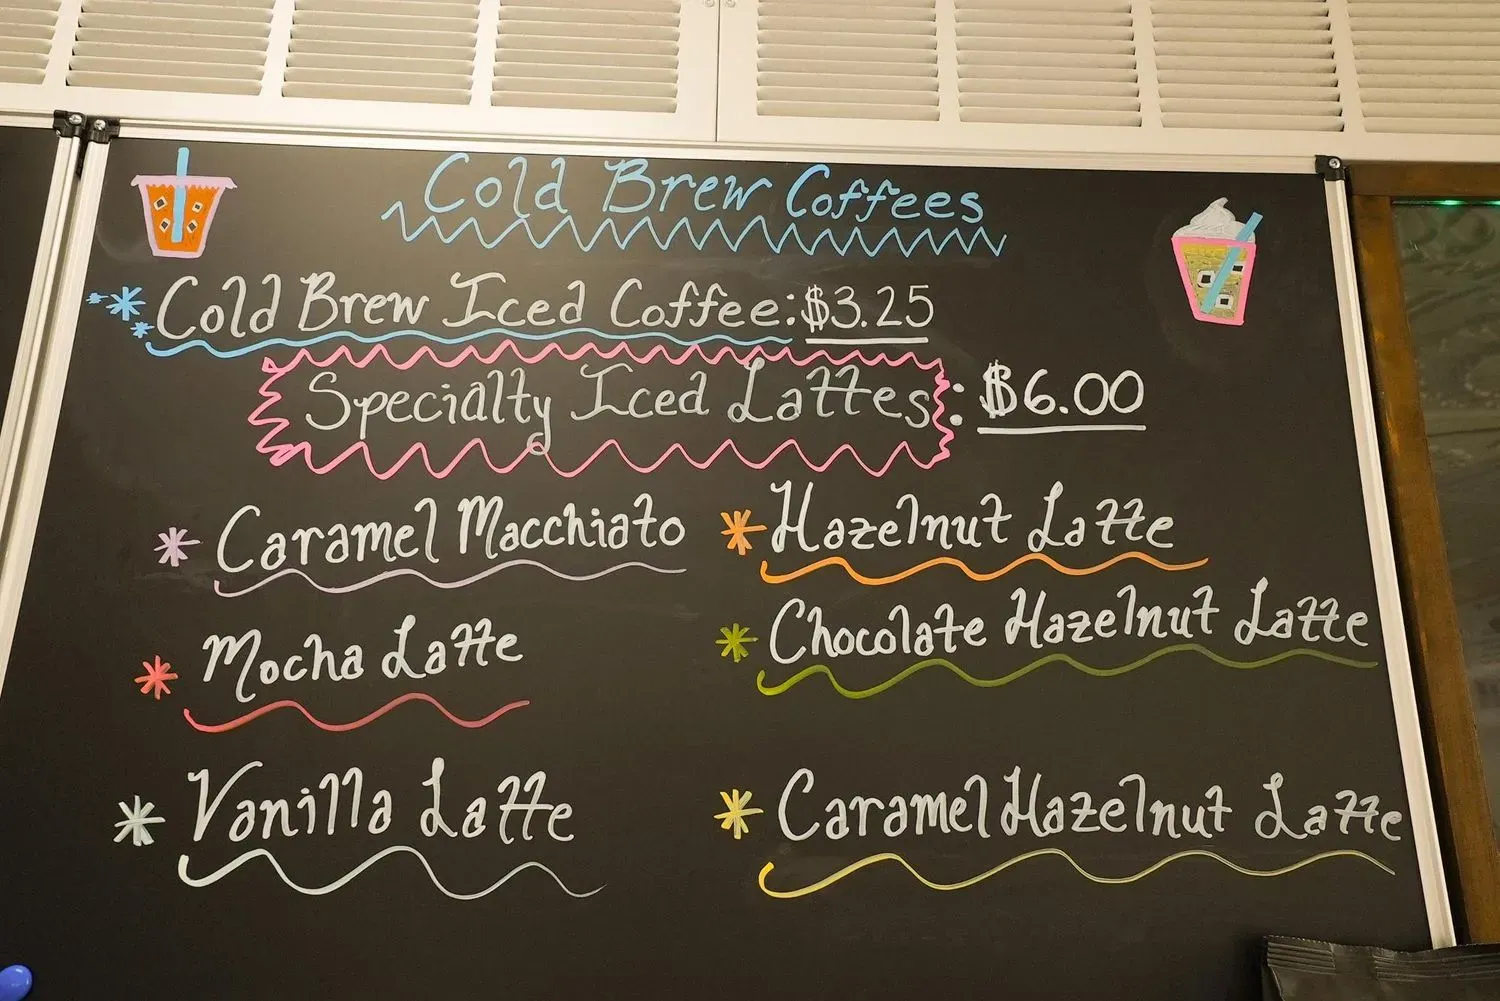 Cold Brew Coffees
Cold Brew Iced Coffee: $3.25
Specialty Iced Lattes: $6.00
Caramel Macchiato
Hazelnut Latte
Mocha Latte
Chocolate Hazelnut Latte
Vanilla Latte
Caramel Hazelnut Latte